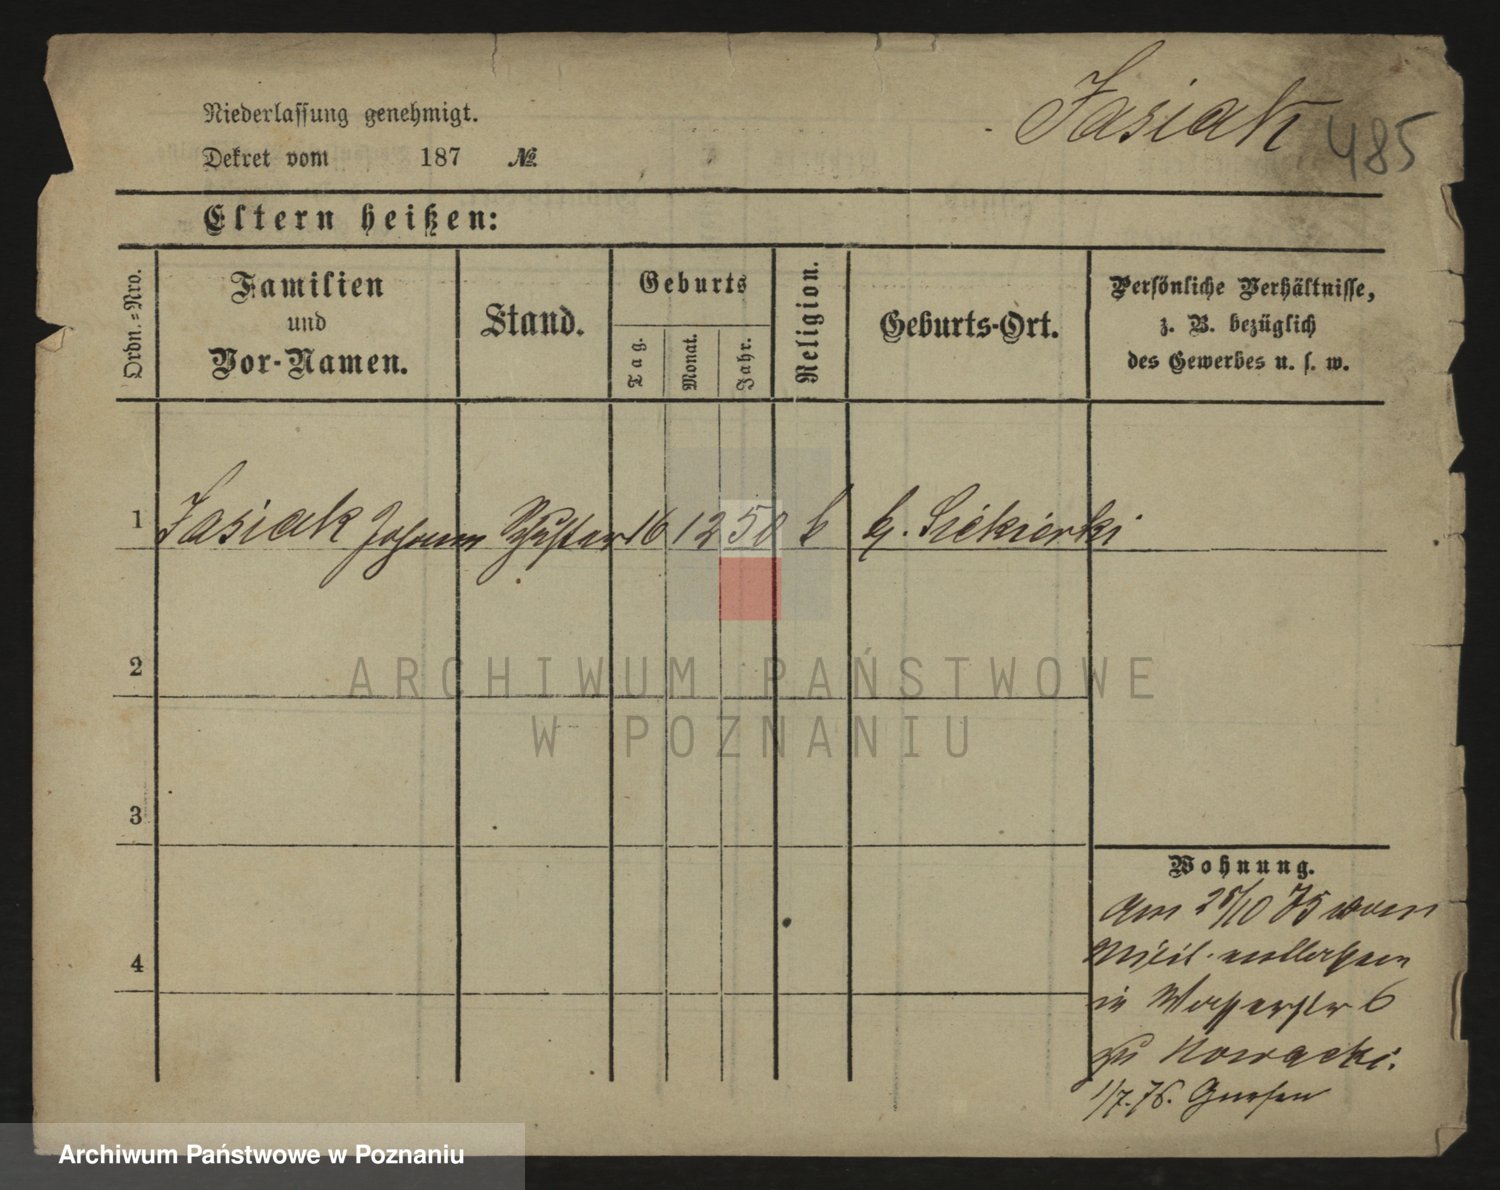 Jasiak 485
Niederlassung genehmigt.
Dekret vom 187 №
Eltern heißen:
Ordn.-Nro.
Familien
und
Vor-Namen.
Stand.
Geburts
Tag.
Monat.
Jahr.
Religion.
Geburts-Ort.
Persönliche Verhältnisse,
z. B. bezüglich
des Gewerbes u. s. w.
1 Jasiak Johann Schuster 16 12 50 k Siekierki
2
ARCHIWUM PAŃSTWOWE
W POZNANIU
3
Wohnung.
Am 25/10 75 vom
Milit. entlassen
in Wasserstr 6
zu Nowacki.
1/7. 76. Gnesen
4
Archiwum Państwowe w Poznaniu